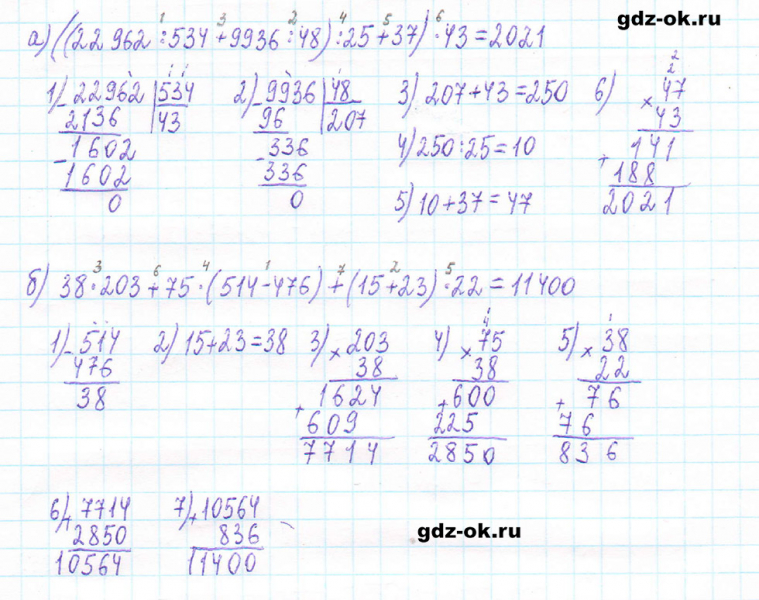 gdz-ok.ru
1 3 2 4 5 6
а) ((22 962 : 534 + 9936 : 48) : 25 + 37) · 43 = 2021
1) - 22962 | 534
2136 | 43
- 1602
1602
0
2) - 9936 | 48
96 | 207
- 336
336
0
3) 207 + 43 = 250
4) 250 : 25 = 10
5) 10 + 37 = 47
6) × 47
43
+ 141
188
2021
3 6 4 1 7 2 5
б) 38 · 203 + 75 · (514 - 476) + (15 + 23) · 22 = 11400
1) - 514
476
38
2) 15 + 23 = 38
3) × 203
38
+ 1624
609
7714
4) × 75
38
+ 600
225
2850
5) × 38
22
+ 76
76
836
6) + 7714
2850
10564
7) + 10564
836
11400
gdz-ok.ru